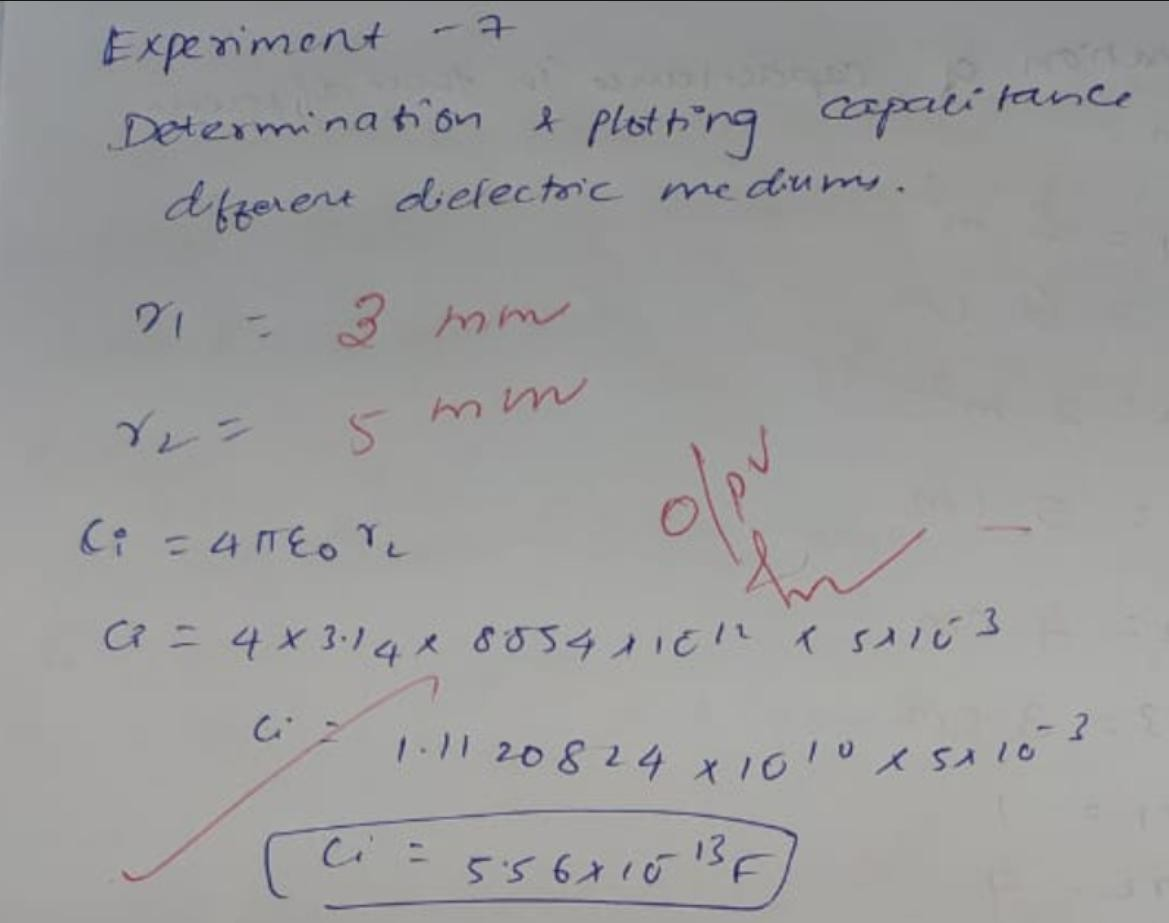 Experiment - 7
Determination & plotting capacitance
dfferent dielectric mediums.
r1 = 3 mm
r2 = 5 mm
O/P
Ci = 4πε0 r2
Ci = 4 x 3.14 x 8854 x 10^-12 x 5x10^-3
Ci = 1.1120824 x 10^-10 x 5x10^-3
Ci = 5.56x10^-13 F